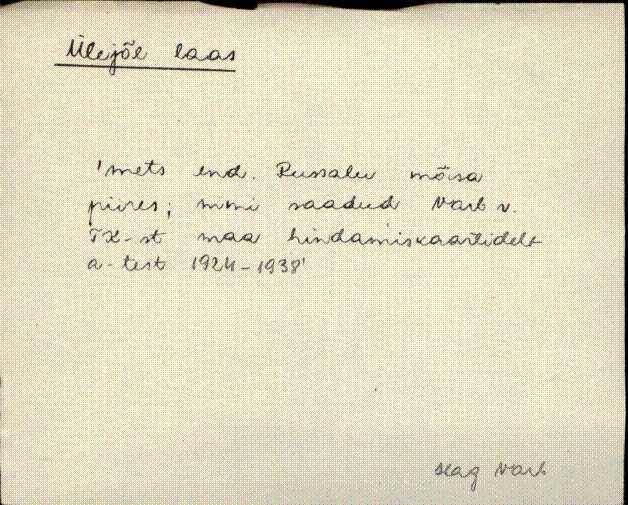 Ülejõe laas
'mets end. Russalu mõisa
piires; nimi saadud Varb v.
TK-st maa hindamiskaartidelt
a-test 1924-1938'
Varb